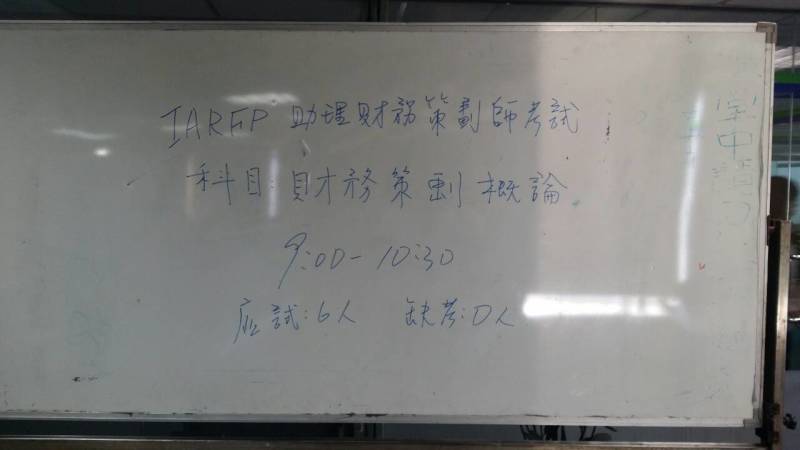 IARFP 助理財務策劃師考試
科目:財務策劃概論
9:00-10:30
应試:6人 缺考:0人